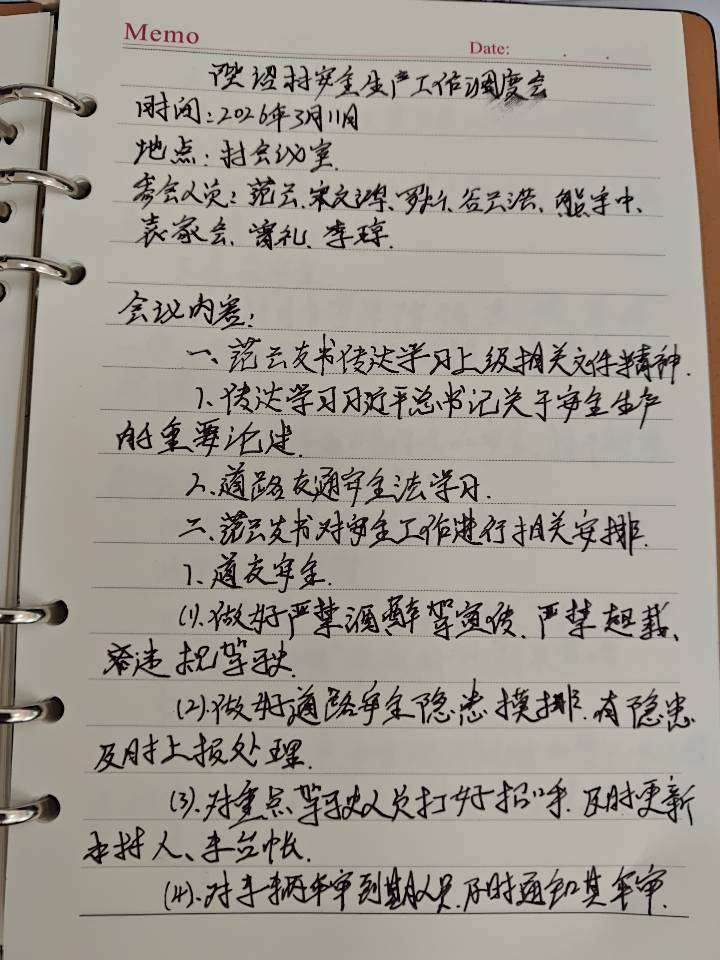 Memo
Date: . .
村安全生产工作调度会
时间:2026年3月11日
地点:村会议室.
参会人员:范云、宋文鸿、罗、谷云浩、熊中、
袁家会、礼、李琼.
会议内容:
一、范云支书传达学习上级相关文件精神.
1、传达学习习近平总书记关于安全生产
的重要论述.
2、道路交通安全法学习.
二、范云支书对安全工作进行相关安排.
1、道交安全.
(1)、做好严禁酒醉驾宣传、严禁超载、
违规驾驶.
(2)、做好道路安全隐患摸排、有隐患
及时上报处理.
(3)、对重点驾驶人员打好招呼、及时更新
持人、车台帐.
(4)、对车辆年审到期人员、及时通知其年审.